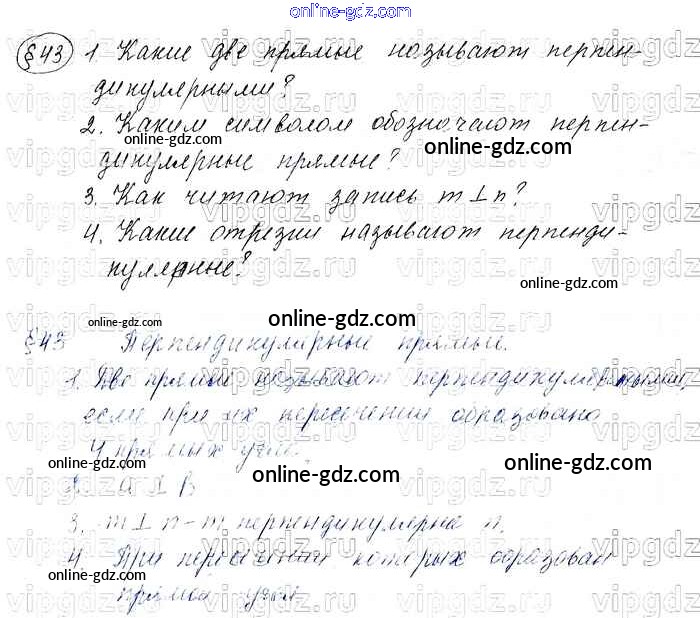 online-gdz.com
§43 1. Какие две прямые называют перпен-
дикулярными?
2. Каким символом обозначают перпен-
дикулярные прямые?
online-gdz.com
3. Как читают запись m⊥n?
4. Какие отрезки называют перпенди-
кулярные?
online-gdz.com
online-gdz.com
online-gdz.com
§43 Перпендикулярные прямые.
1. Две прямые называют перпендикулярными,
если при их пересечении образовано
4 прямых угла.
online-gdz.com
online-gdz.com
online-gdz.com
a ⊥ b
3. m⊥n - m перпендикулярна n.
4. При пересечении которых образован
online-gdz.com
online-gdz.com
прямой угол